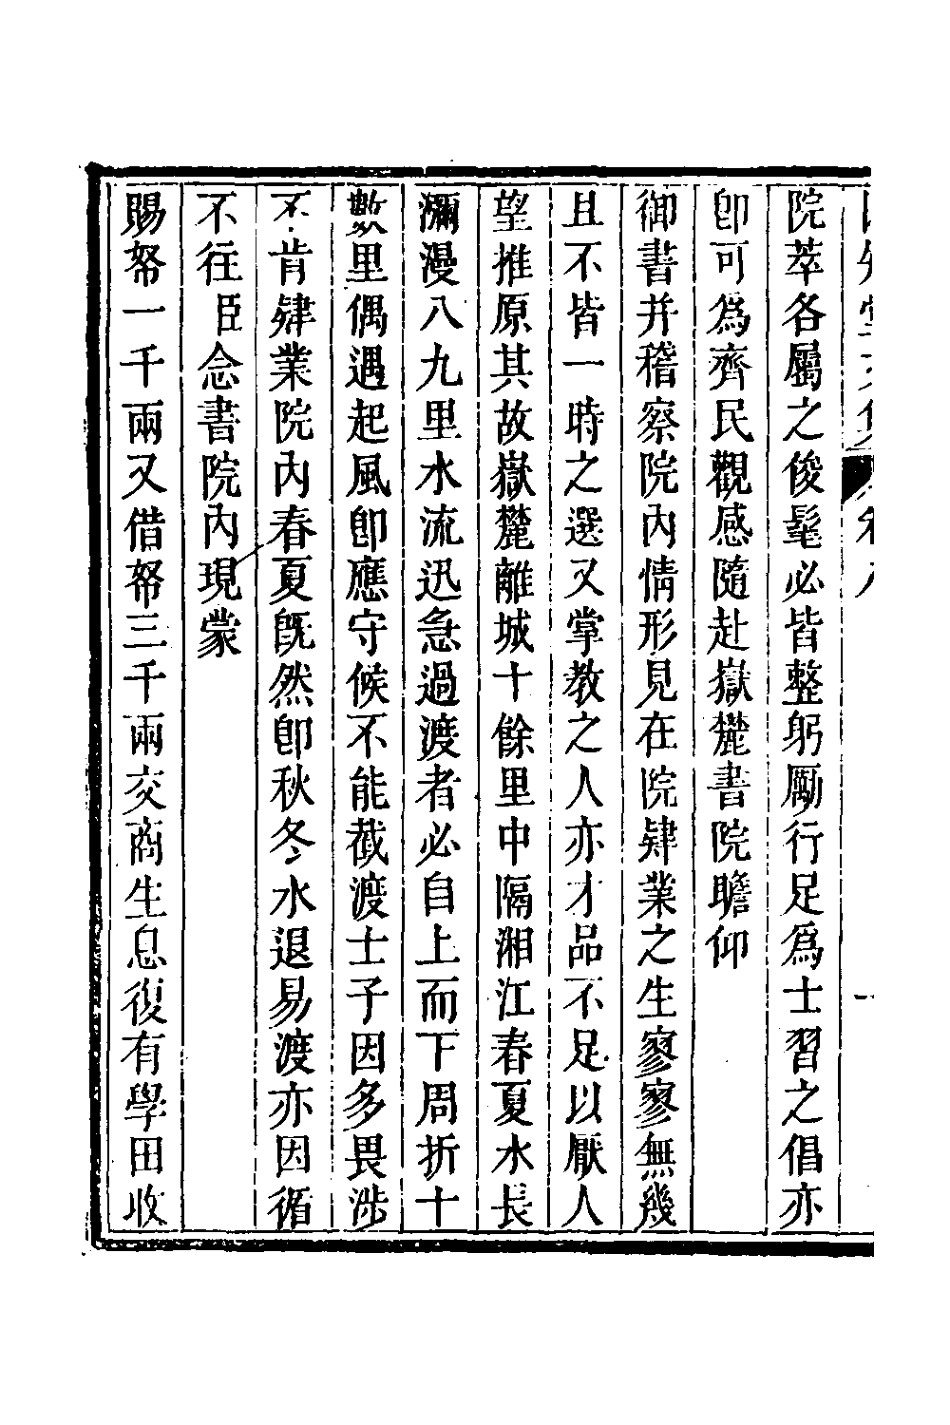 院萃各屬之俊髦必皆整躬勵行足爲士習之倡亦
卽可爲齊民觀感隨赴嶽麓書院瞻仰
御書并稽察院內情形見在院肄業之生寥寥無幾
且不皆一時之選又掌教之人亦才品不足以厭人
望推原其故嶽麓離城十餘里中隔湘江春夏水長
瀰漫八九里水流迅急過渡者必自上而下周折十
數里偶遇起風卽應守候不能截渡士子因多畏涉
不肯肄業院內春夏旣然卽秋冬水退易渡亦因循
不往臣念書院內現蒙
賜帑一千兩又借帑三千兩交商生息復有學田收